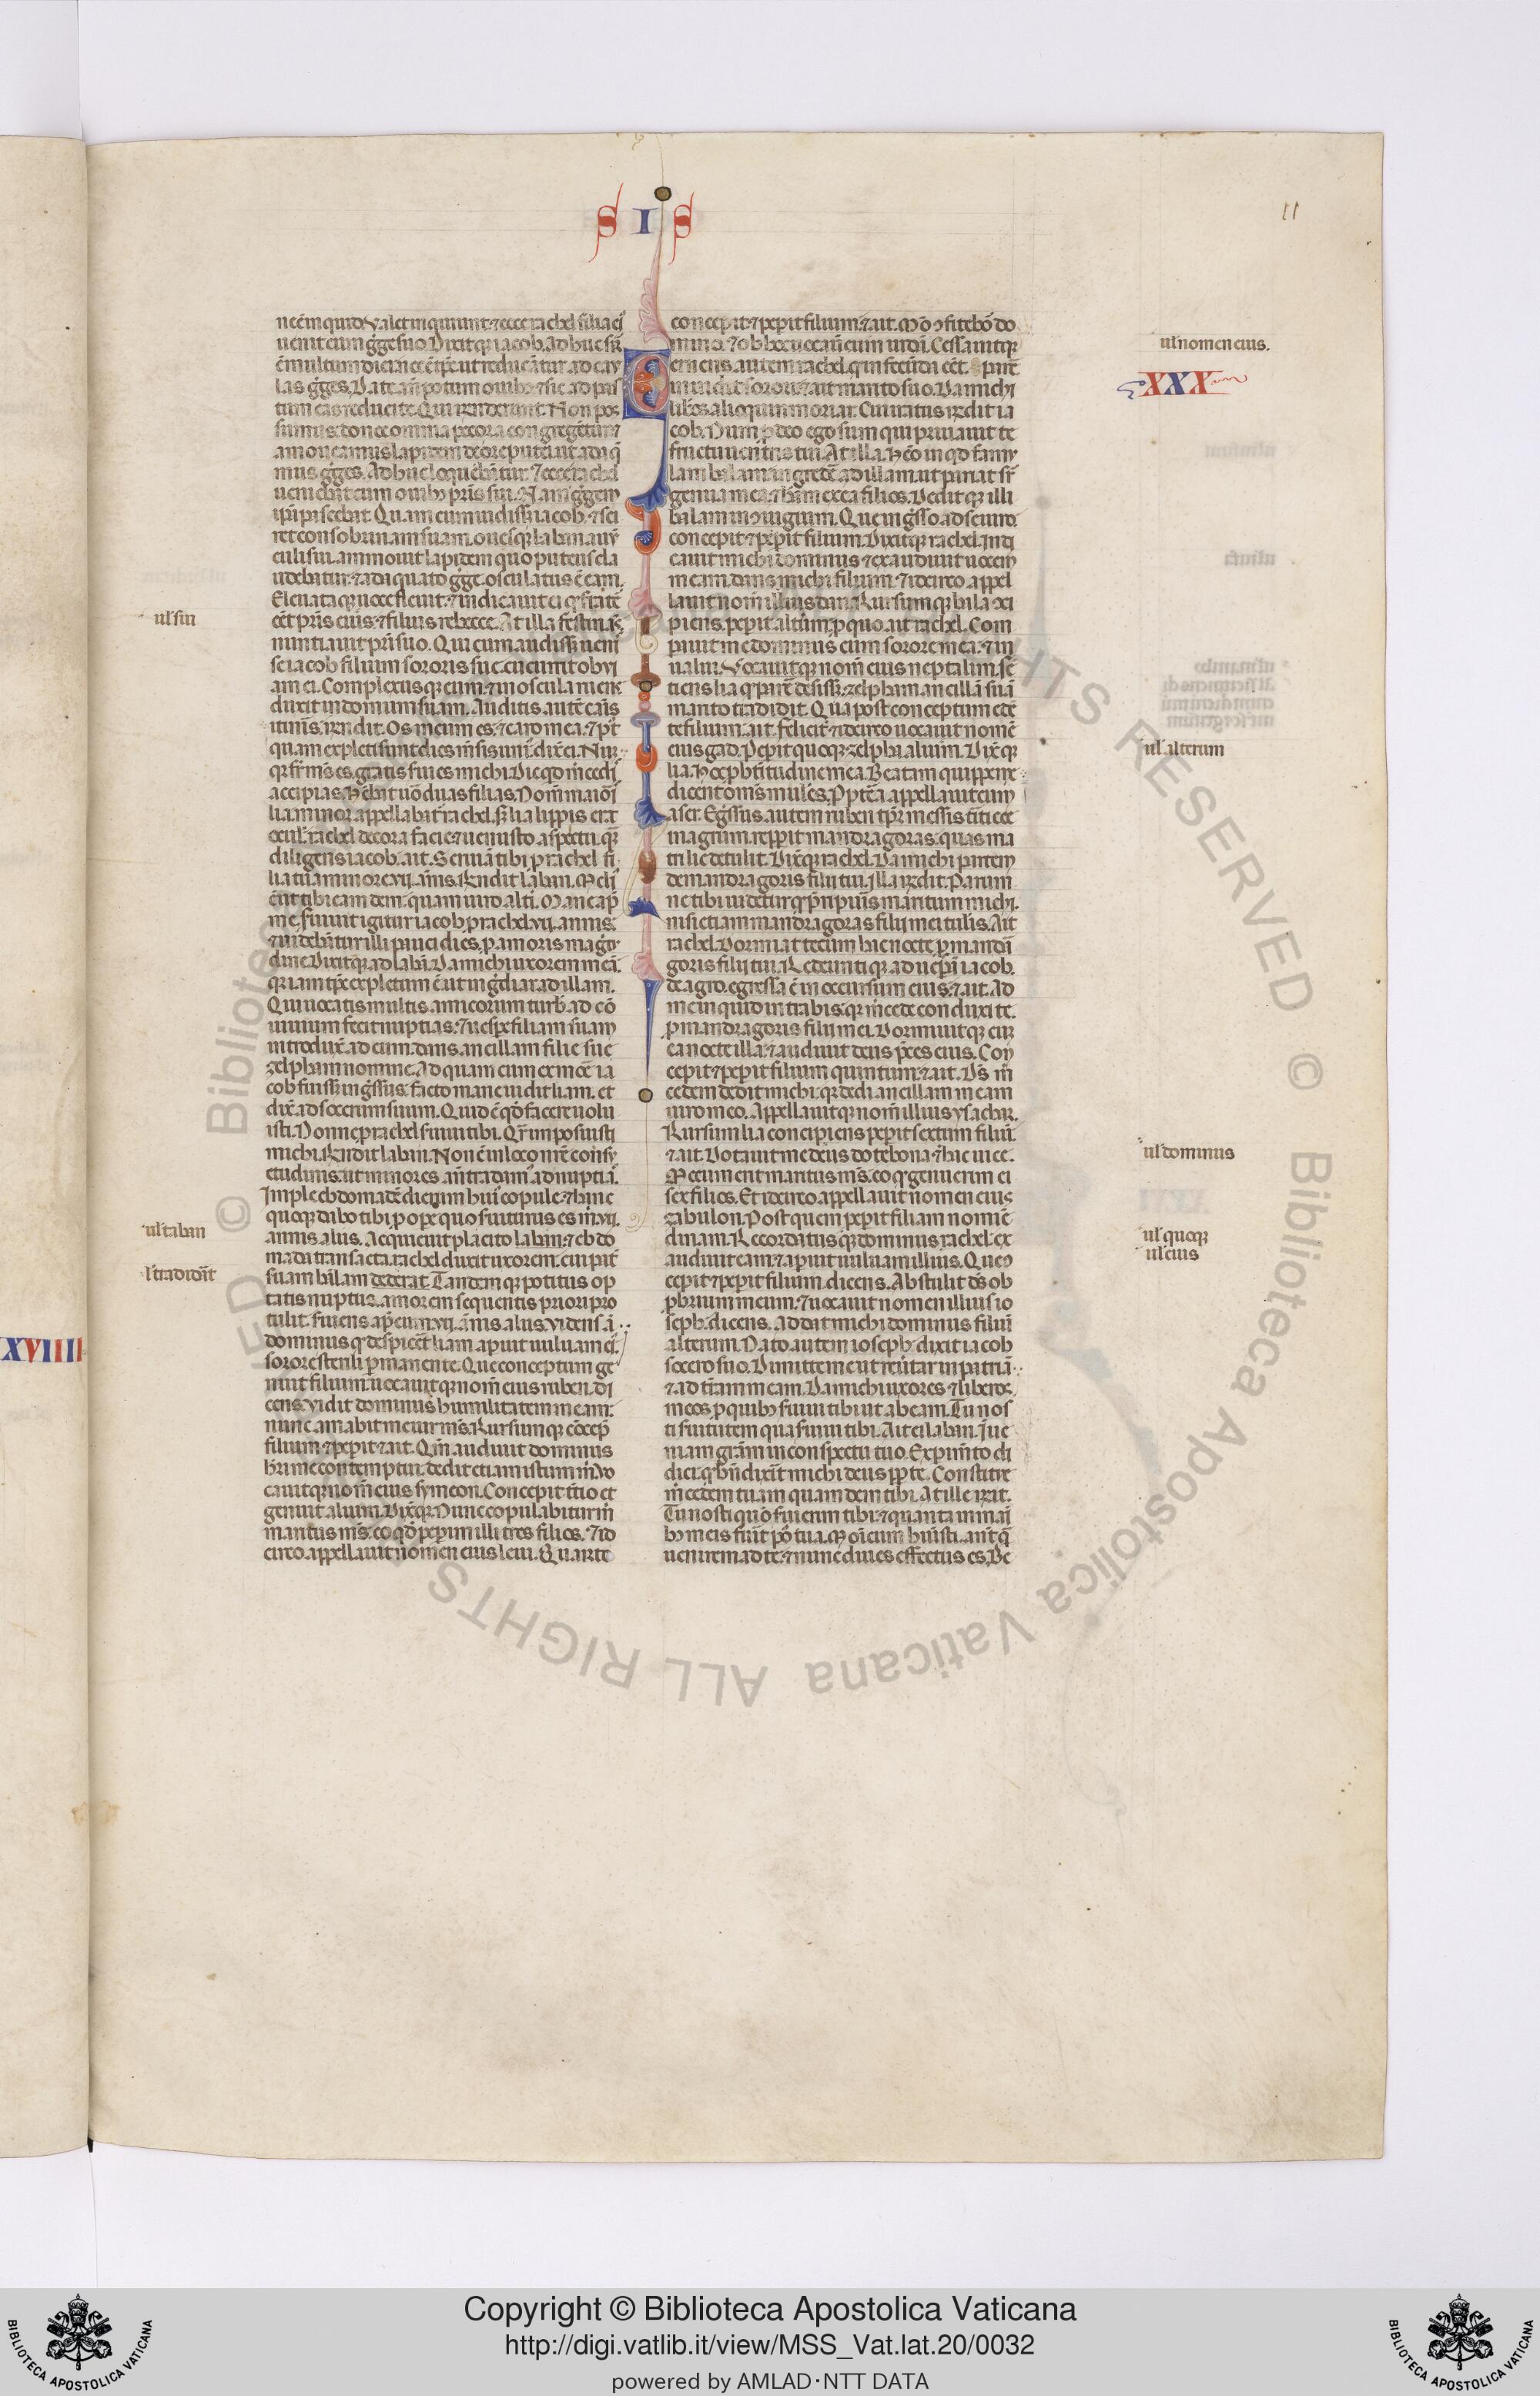 S I S
11
ne ē inquid. Valet inquiunt. ⁊ ecce rachel filia eiꝰ
uenit cum g̃ge suo. Dixitqꝫ iacob. Adhuc suꝑ
las g̃ges. Date añ potum ouibꝫ ⁊ sic ad pas
tum eas reducite. Qui r̃nderunt. Non pos
sumus. donec omnia pecora congregentur ⁊
amoueamus lapidem de ore putei. ut adaq̃
mus g̃ges. Adhuc loquebãtur. ⁊ ecce rachel
ueniebat cum ouibꝫ pr̃is sui. Nam g̃gem
ip̃a pascebat. Quam cum uidiss; iacob. ⁊ sci
ret consobrinam suam. ouesqꝫ laban auñ
culi sui. ammouit lapidem quo puteus cla
udebatur. ⁊ adaquato g̃ge. osculatus ē eam.
Eleuataqꝫ uoce fleuit. ⁊ indicauit ei qꝫ frater
eēt pr̃is eius. ⁊ filius rebecce. At illa festinãs
nuntiauit pr̃i suo. Qui cum audiss; ueni
se iacob filium sororis sue. cucurrit obui
am ei. Complexusqꝫ eum. ⁊ in oscula ruens
duxit in domum suam. Auditis autē causis
itineris. r̃ndit. Os meum es. ⁊ caro mea. ⁊ pꝰt
quam expleti sunt dies m̃sis uniꝰ. dix̃ ei. Nũ
qꝫ fr̃ mꝰs es. gratis seruies michi. Dic qd m̃cedis
accipias. Hēbat uõ duas filias. Nom̃ maioris
lia. minor appellabat᷑ rachel. S; lia lippis erat
oculis. rachel decora facie. ⁊ uenusto aspectu. qm̃
diligens iacob. ait. Seruiã tibi p rachel fi
lia tua minore .vii. ãnis. R̃ndit laban. Meliꝰ
ē ut tibi eam dem. quam uiro alt̃i. Mane apud
me. Seruiuit igitur iacob p rachel .vii. annis.
⁊ uidebãtur illi pauci dies. p amoris magnitu
dine. Dixitqꝫ ad labã. Da michi uxorem meã.
qꝫ iam tp̃s expletum ē. ut ing̃diar ad illam.
Qui uocatis multis amicorum turbis ad cõ
uiuium. fecit nuptias. ⁊ uesꝑe filiam suam
introdux̃ ad eum. dans ancillam filie sue
zelpham nomine. Ad quam cum ex more ia
cob fuiss; ing̃ssus. facto mane uidit liam. et
dix̃ ad socerum suum. Quid ē qd facere uolu
isti. Nonne p rachel seruiui tibi. Qr̃ imposuisti
michi. R̃ndit laban. Non ē in loco nr̃o consu
etudinis. ut minores añ tradamꝰ ad nuptias.
Imple ebdomadē dierum huiꝰ copule. ⁊ hanc
quoqꝫ dabo tibi. p oꝑe quo seruiturus es m̃ .vii.
annis aliis. Acquieuit placito laban. ⁊ ebdo
mada transacta. rachel duxit uxorem. cui pat̃
suam balam dederat. Tandemqꝫ potitus op
tatis nuptiis. amorem sequentis priori pre
tulit. seruiens apud eum .vii. ãnis aliis. Videns a
dominus qꝫ despiceret liam. aperuit uuluam eiꝰ.
sorore sterili ꝑmanente. Que conceptum ge
nuit filium. uocauitqꝫ nom̃ eius ruben. di
cens. Vidit dominus humilitatem meam.
nunc amabit me uir mꝰs. Rursumqꝫ concep̃
filium ⁊ peꝑit. ⁊ ait. Qm̃ audiuit dominus
h̃i me contemptui. dedit etiam istum m̃. Vo
cauitqꝫ nom̃ eius symeon. Concepit t̃tio et
genuit alium. Dix̃qꝫ. Nunc copulabitur m̃
maritus mꝰs. eo qd peꝑim illi tres filios. ⁊ id
circo appellauit nomen eius leui. Quarto
concepit ⁊ peꝑit filium. ⁊ ait. Mõ ꝯfitebor do
mino. ⁊ ob hoc uocauit eum iudã. Cessauitqꝫ
Cernens autem rachel. qꝫ infecũda eēt.
inuidit sorori. ⁊ ait marito suo. Da michi
lib̃os. alioquin moriar. Cui iratus r̃ndit ia
cob. Num p deo ego sum. qui priuauit te
fructu uentris tui. At illa. Hēo inqd famu
lam balam. ingredere ad illam. ut pariat sr̃
genua mea. ⁊ hēam ex ea filios. Deditqꝫ illi
balam in ꝯiugium. Que ing̃sso ad se uiro.
concepit ⁊ peꝑit filium. Dixitqꝫ rachel. Iudi
cauit michi dominus. ⁊ exaudiuit uocem
meam. dans michi filium. ⁊ idcirco appel
lauit nom̃ illius dan. Rursumqꝫ bala ꝯci
piens. peꝑit altum. p quo ait rachel. Com
parauit me dominus cum sorore mea. ⁊ in
ualui. Vocauitqꝫ nom̃ eius neptalim. Sē
tiens lia qꝫ parere desiss;. zelpham ancillã suã
marito tradidit. Qua post conceptum edē
te filium. ait. Felicit̃. ⁊ idcirco uocauit nomē
eius gad. Peꝑit quoqꝫ zelpha alium. Dix̃qꝫ
lia. Hoc p beatitudine mea. Beatam quippe me
dicent om̃s mulieres. Pp̃terea appellauit eum
aser. Eg̃ssus autem ruben tp̃r messis tritice̜
in agrum. repperit mandragoras. quas ma
tri lie detulit. Dix̃qꝫ rachel. Da michi partem
de mandragoris filii tui. Illa r̃ndit. Parum
ne tibi uidetur. qꝫ p̃ripueris maritum michi.
nisi etiam mandragoras filii mei tuleris. Ait
rachel. Dormiat tecum hac nocte. p mandra
goris filii tui. Redeuntiqꝫ ad uesꝑam iacob.
de agro. egressa ē in occursum eius. ⁊ ait. Ad
me inquid intrabis. qꝫ m̃cede conduxi te.
p mandragoris filii mei. Dormiuitqꝫ cum
ea nocte illa. ⁊ audiuit deus p̃ces eius. Con
cepit ⁊ peꝑit filium quintum. ⁊ ait. Dꝰs m̃
cedem dedit michi. qꝫ dedi ancillam meam
uiro meo. Appellauitqꝫ nom̃ illius ysachar.
Rursum lia concipiens. peꝑit sextum filiũ.
⁊ ait. Dotauit me deus dote bona. ⁊ hac uice.
Mecum erit maritus mꝰs. eo qꝫ genuerim ei
sex filios. Et idcirco appellauit nomen eius
zabulon. Post quem peꝑit filiam nomine
dinam. Recordatusqꝫ dominus rachel. ex
audiuit eam. ⁊ aperuit uuluam illius. Que ꝯ
cepit ⁊ peꝑit filium dicens. Abstulit dꝰs ob
probrium meum. ⁊ uocauit nomen illius io
seph. dicens. Addat michi dominus filiũ
alterum. Nato autem ioseph. dixit iacob
socero suo. Dimitte me ut reuertar in patriã.
⁊ ad t̃ram meam. Da michi uxores ⁊ liberos
meos. p quibꝫ seruiui tibi ut abeam. Tu nos
ti seruitutem qua seruiui tibi. Ait ei laban. Inue
niam gr̃am in conspectu tuo. Experim̃to di
dici. qꝫ bñdix̃it michi deus pp̃ te. Constitue
m̃cedem tuam quam dem tibi. At ille r̃ndit.
Tu nosti quõ seruierim tibi. ⁊ quanta in mani
bꝫ meis fuerit possessio tua. Modicum habuisti antequam
uenirem ad te. ⁊ nunc diues effectus es. Be
uł sui
uł laban
ł tradidit
XVIIII
uł nomen eius.
XXX
uł alterum
uł dominus
uł quoqꝫ
uł eius
© Biblioteca Apostolica Vaticana ALL RIGHTS RESERVED
Copyright © Biblioteca Apostolica Vaticana
http://digi.vatlib.it/view/MSS_Vat.lat.20/0032
powered by AMLAD·NTT DATA
BIBLIOTECA APOSTOLICA VATICANA
BIBLIOTECA APOSTOLICA VATICANA